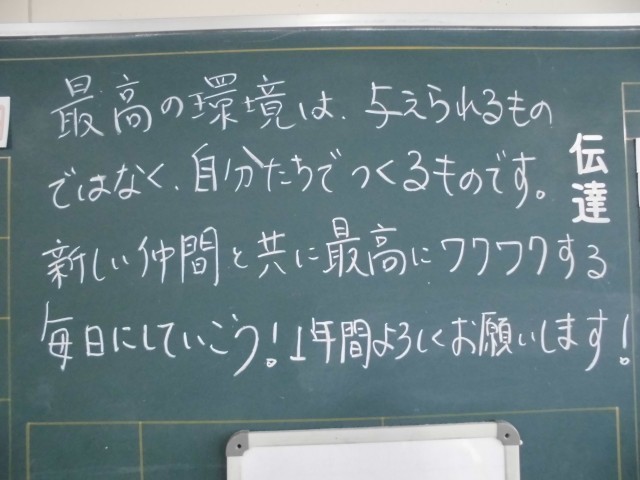 最高の環境は、与えられるもの
ではなく、自分たちでつくるものです。
新しい仲間と共に最高にワクワクする
毎日にしていこう！1年間よろしくお願いします！
伝達